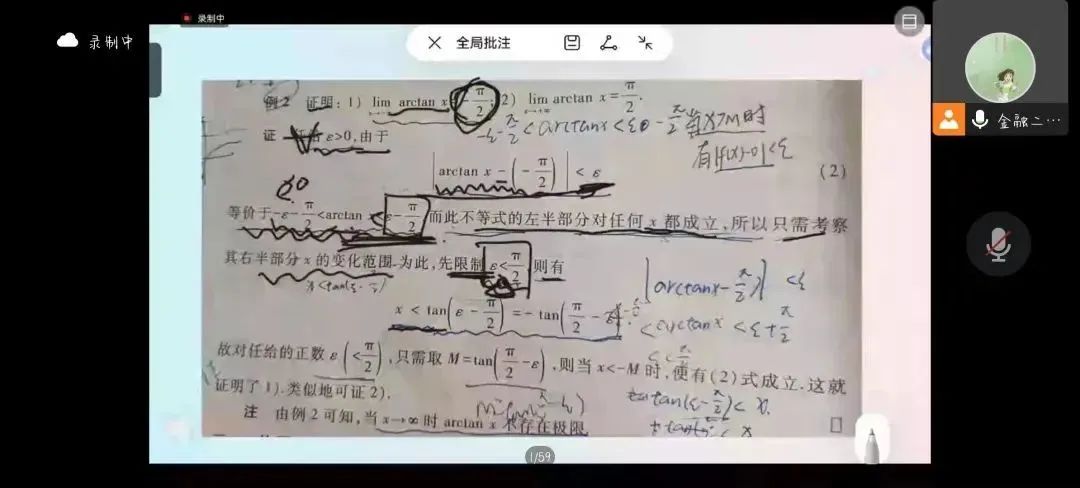 录制中
录制中
全局批注
金融二…
例2 证明：1) lim arctan x = -π/2; 2) lim arctan x = π/2.
x→+∞
-ε-π/2 < arctanx < ε
当x>M时
证 任给 ε>0,由于
有|f(x)-0|<ε
|arctan x - (-π/2)| < ε (2)
等价于-ε-π/2<arctan x<ε-π/2 而此不等式的左半部分对任何 x 都成立,所以只需考察
其右半部分 x 的变化范围.为此,先限制 ε<π/2,则有
x<tan(ε-π/2)
|arctanx-π/2| <ε
x < tan(ε-π/2) = -tan(π/2-ε).
<arctanx<ε+π/2
故对任给的正数 ε(<π/2),只需取 M=tan(π/2-ε),则当 x<-M 时,便有(2)式成立.这就
证明了1).类似地可证2).
tan(ε-π/2)<x
注 由例2可知,当 x→∞ 时 arctan x 不存在极限.
1/59